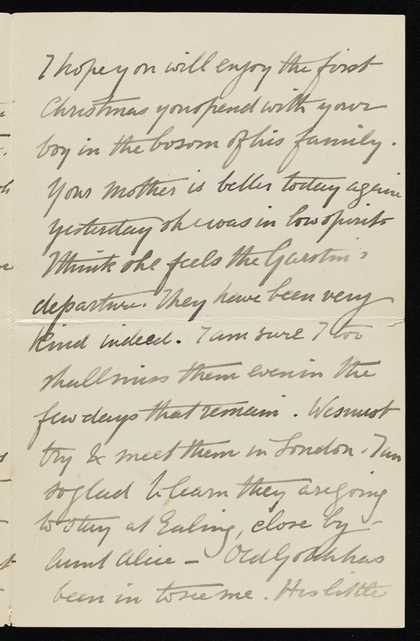 I hope you will enjoy the first
Christmas you spend with your
boy in the bosom of his family.
Your mother is better today again
yesterday she was in low spirits
I think she feels the Garstin's
departure. They have been very
kind indeed. I am sure I too
shall miss them even in the
few days that remain. We must
try & meet them in London. I am
so glad to learn they are going
to stay at Ealing, close by
Aunt Alice – Old has
been in to see me. His little